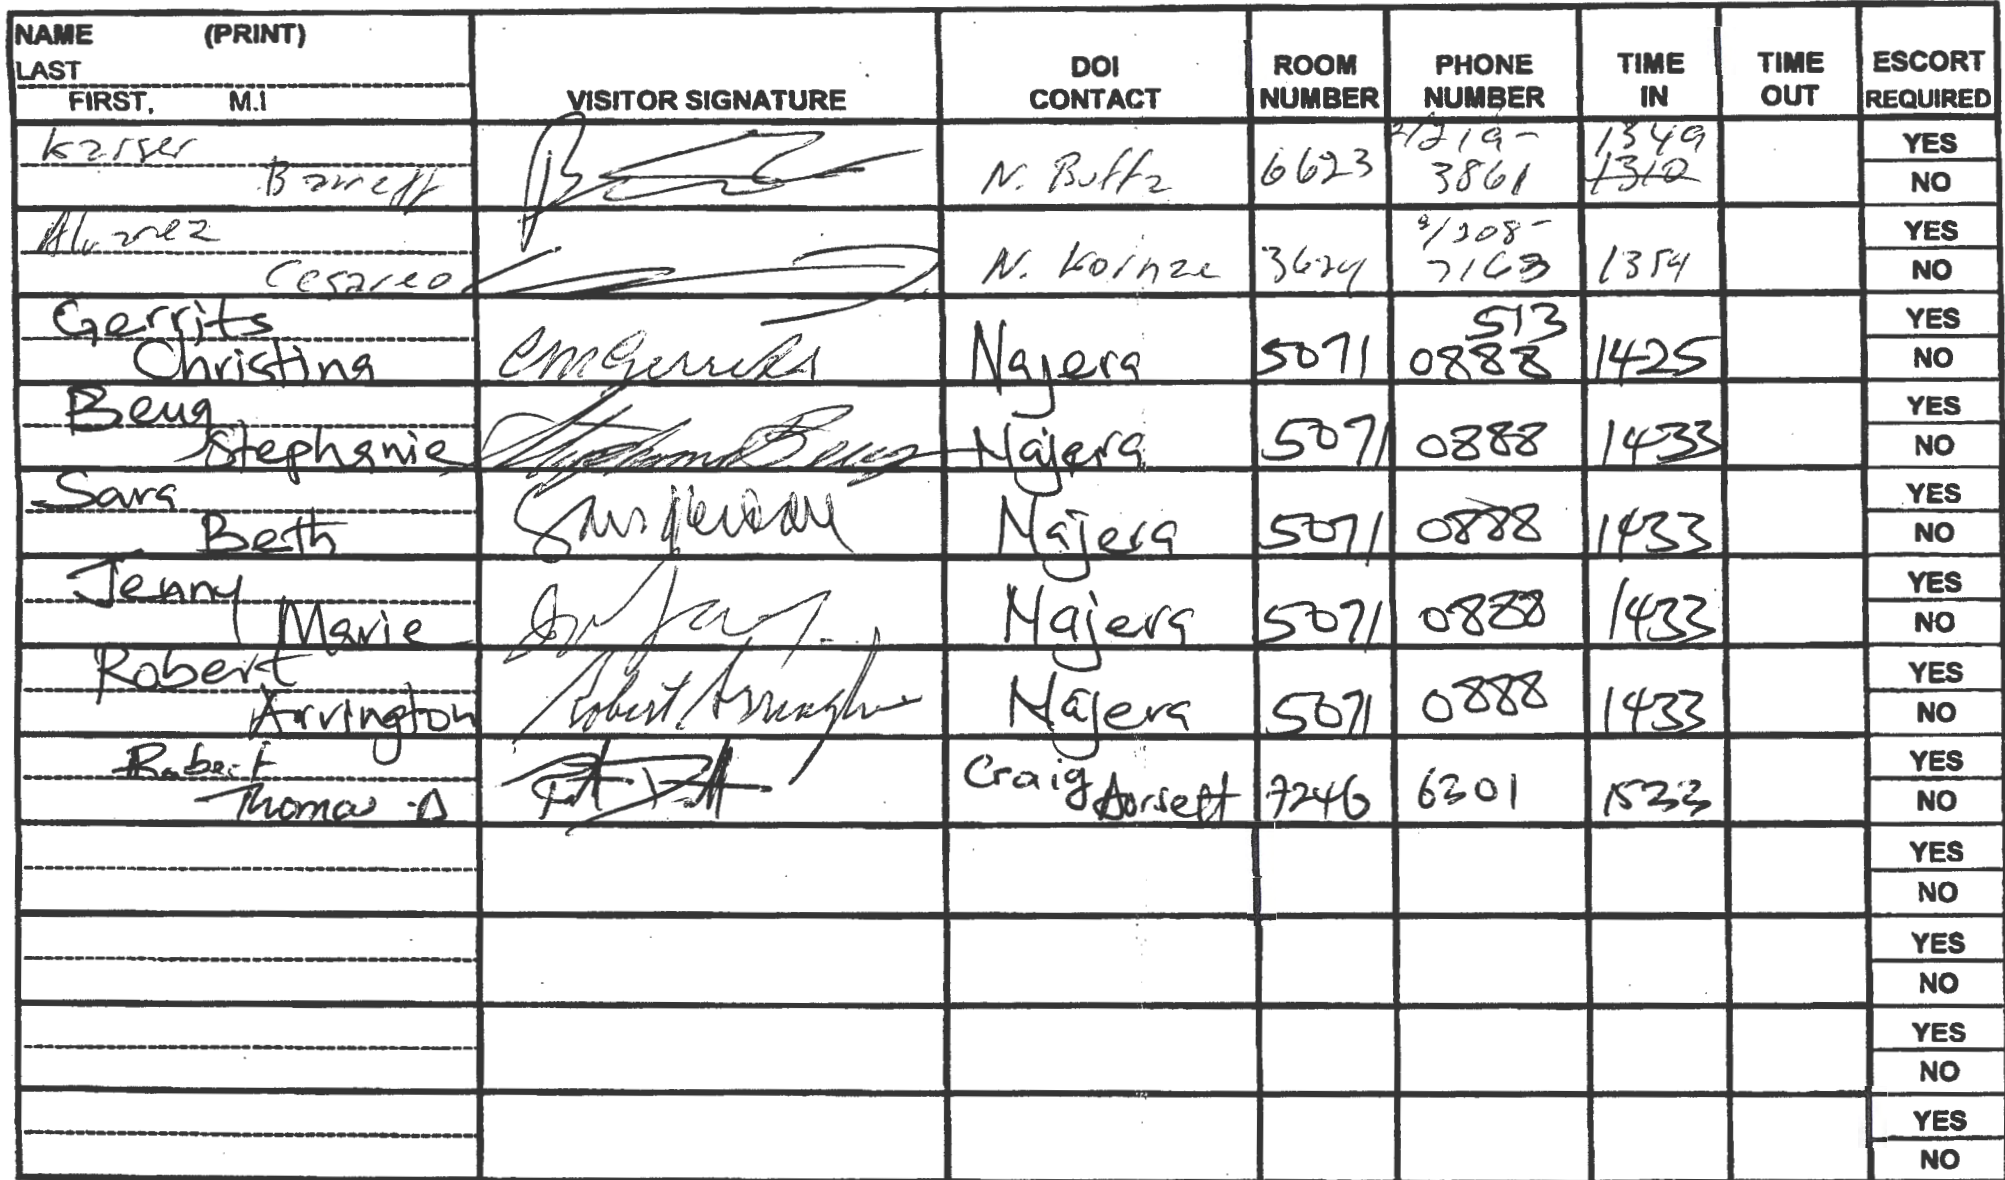 NAME (PRINT)
LAST
FIRST, M.I
VISITOR SIGNATURE
DOI
CONTACT
ROOM
NUMBER
PHONE
NUMBER
TIME
IN
TIME
OUT
ESCORT
REQUIRED
Barrett
N.
6623
219-
3861
1349
1310
YES
NO
Alvarez
Cesareo
N. Kornze
3624
208-
7163
1354
YES
NO
Gerrits
Christina
CMGerrits
Najera
5071
513
0888
1425
YES
NO
Beug
Stephanie
Stephanie Beug
Najera
5071
0888
1433
YES
NO
Sara
Beth
Najera
5071
0888
1433
YES
NO
Jenny
Marie
Najera
5071
0888
1433
YES
NO
Robert
Arrington
Robert Arrington
Najera
5071
0888
1433
YES
NO
Robert
Thomas D
Craig
Dorsett
7246
6301
1533
YES
NO
YES
NO
YES
NO
YES
NO
YES
NO